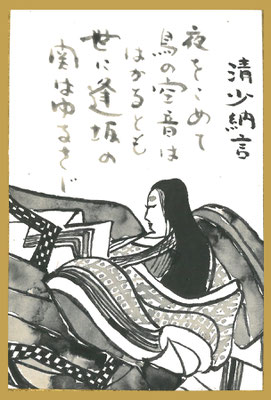 清少納言
夜をこめて
鳥の空音は
はかるとも
世に逢坂の
関はゆるさじ